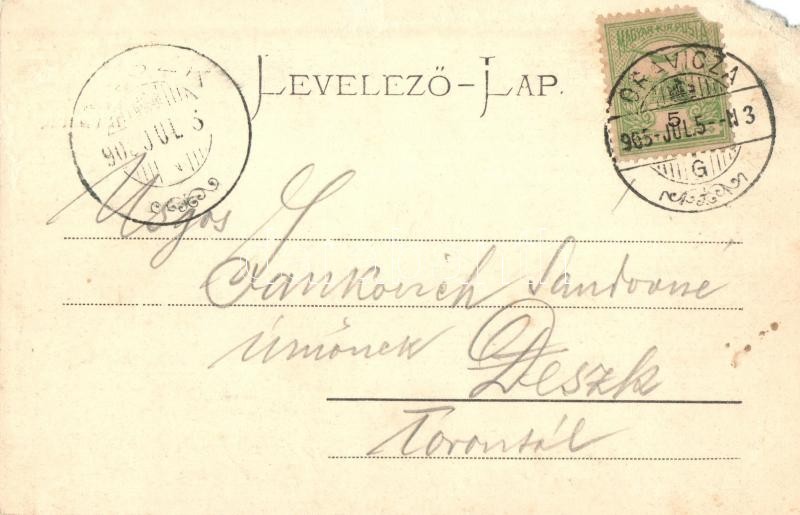 LEVELEZŐ-LAP.
MAGYAR KIR. POSTA
5
ORAVICZA
905-JUL.5--N3
G
JUL 6
Jankovich Sandorné
úrnőnek Deszk
Torontál